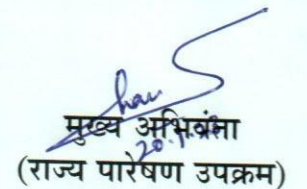 मुख्य अभियंता
(राज्य पारेषण उपक्रम)